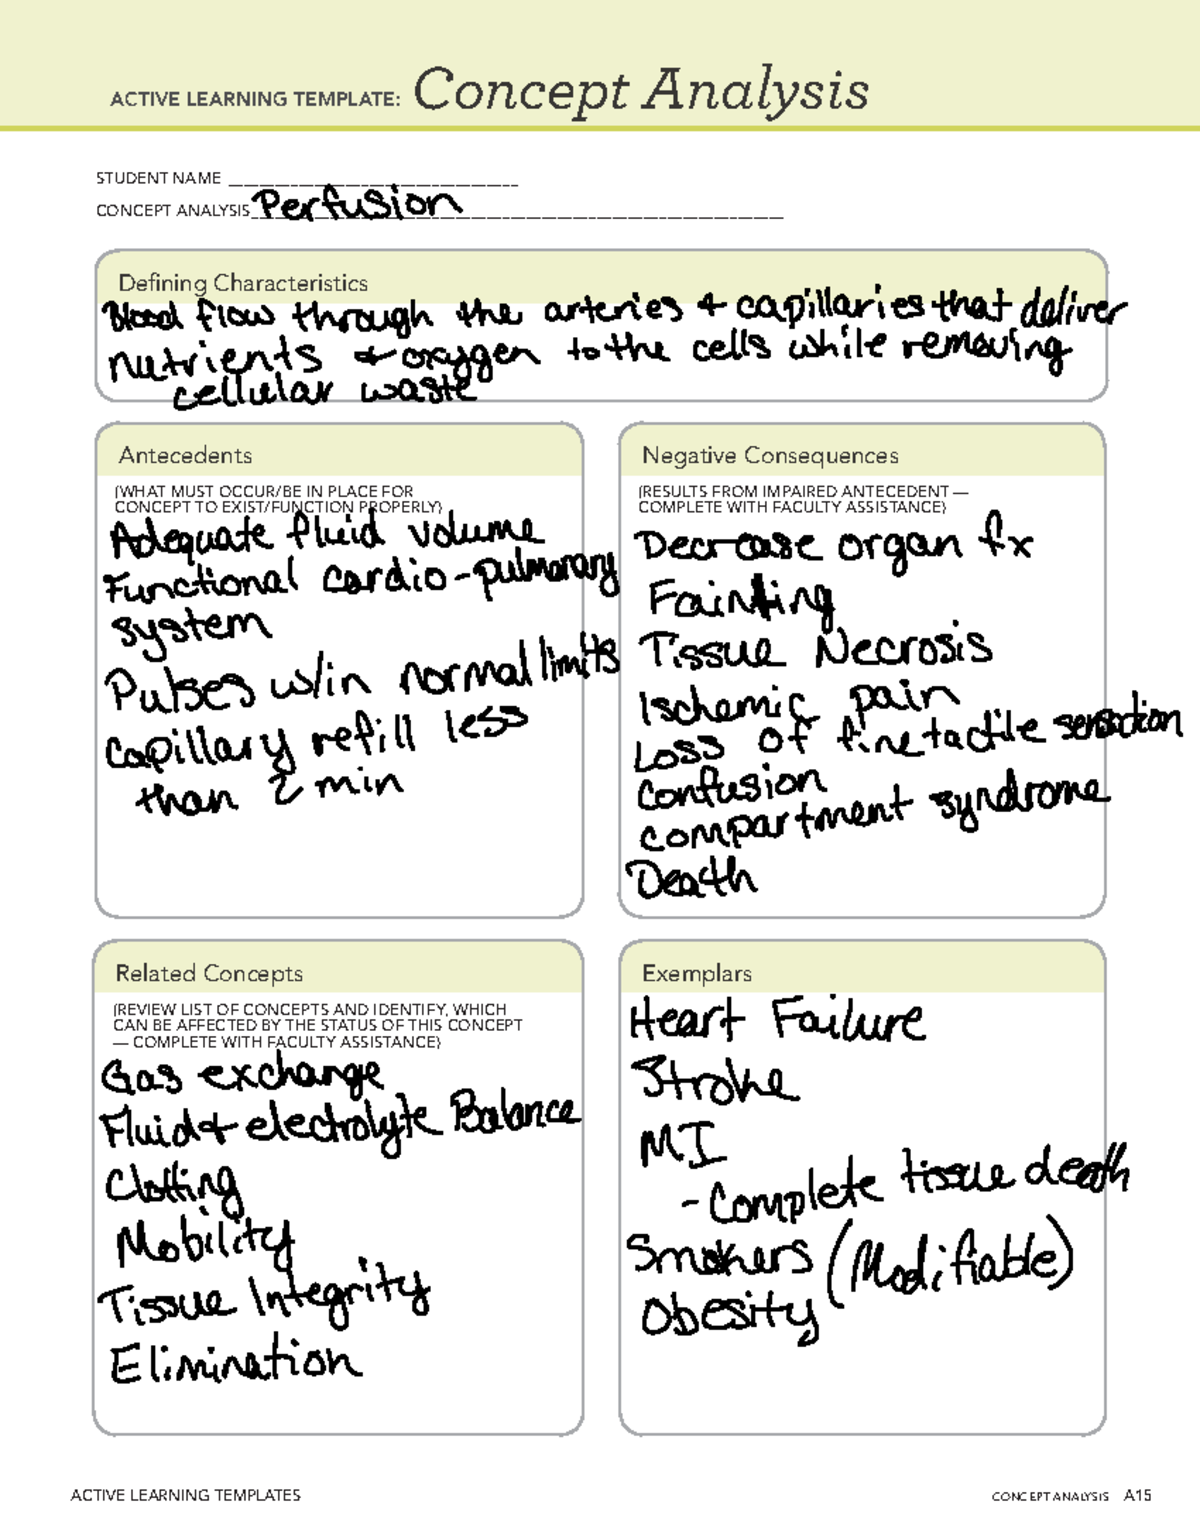 ACTIVE LEARNING TEMPLATE: Concept Analysis
STUDENT NAME
CONCEPT ANALYSIS Perfusion
Defining Characteristics
Blood flow through the arteries & capillaries that deliver
nutrients & oxygen to the cells while removing
cellular waste
Antecedents
(WHAT MUST OCCUR/BE IN PLACE FOR
CONCEPT TO EXIST/FUNCTION PROPERLY)
Adequate fluid volume
Functional cardio-pulmonary
system
Pulses w/in normal limits
capillary refill less
than 2 min
Negative Consequences
(RESULTS FROM IMPAIRED ANTECEDENT —
COMPLETE WITH FACULTY ASSISTANCE)
Decrease organ fx
Fainting
Tissue Necrosis
Ischemic pain
Loss of fine tactile sensation
confusion
compartment syndrome
Death
Related Concepts
(REVIEW LIST OF CONCEPTS AND IDENTIFY, WHICH
CAN BE AFFECTED BY THE STATUS OF THIS CONCEPT
— COMPLETE WITH FACULTY ASSISTANCE)
Gas exchange
Fluid & electrolyte Balance
Clotting
Mobility
Tissue Integrity
Elimination
Exemplars
Heart Failure
Stroke
MI
- Complete tissue death
Smokers (Modifiable)
Obesity
ACTIVE LEARNING TEMPLATES
CONCEPT ANALYSIS A15